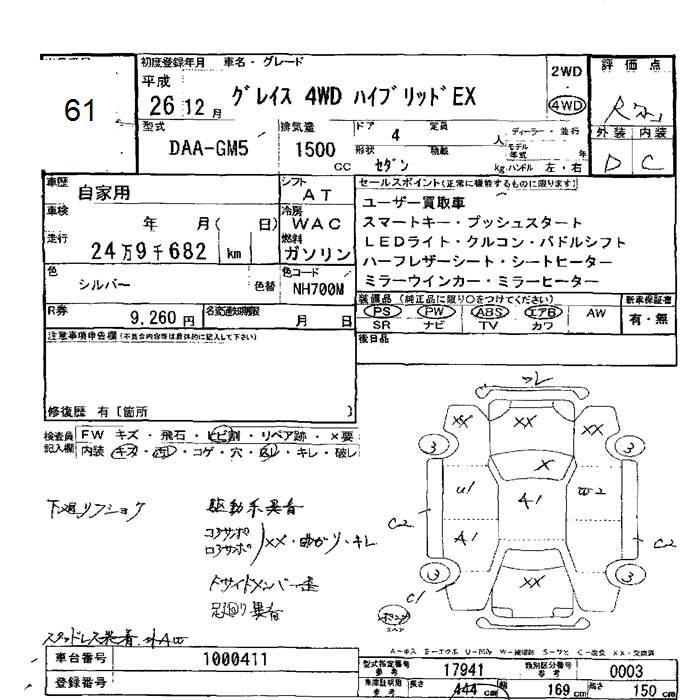 61
初度登録年月 車名・グレード
平成
26 12 月
グレイス 4WD ハイブリッド EX
2WD
4WD
評価点
R
外装 内装
D C
型式
DAA-GM5
排気量
1500
CC
ドア 4 定員 人
形状 セダン 積載 kg
ディーラー・並行
モデル年式 年
ハンドル 左・右
車歴
自家用
シフト
AT
車検
年 月( 日)
冷房
WAC
走行
24万9千682 km
燃料
ガソリン
色
シルバー
色替
色コード
NH700M
セールスポイント(正常に機能するものに限ります)
ユーザー買取車
スマートキー・プッシュスタート
LEDライト・クルコン・パドルシフト
ハーフレザーシート・シートヒーター
ミラーウインカー・ミラーヒーター
R券
9,260 円
名変通知期限
月 日
装備品 (純正品に限り○をつけてください)
PS PW ABS エアB AW
SR ナビ TV カワ
新車保証書
有・無
注意事項申告欄(不具合内容等は具体的に記入して下さい)
後日品
修復歴 有 [箇所 ]
検査員記入欄
FW キズ・飛石・ヒビ割・リペア跡・×要
内装 キズ・汚レ・コゲ・穴・スレ・キレ・破レ
下廻リフショク
駆動系異音
コアサポ
ロアサポ
XX・曲がり・キレ
ドサイドメンバー歪
足廻り異音
スタッドレス装着
XX XX XX
3 3
X
U1 A1 W2
C2 A1 C2
3 3
XX
C1
スペア
A-キズ E-エクボ U-凹み W-補修跡 S-サビ C-腐食 XX-交換済
車台番号
1000411
登録番号
型式指定番号 参考
17941
類別区分番号 参考
0003
車庫証明用 参考
長さ 444 cm
幅 169 cm
高さ 150 cm